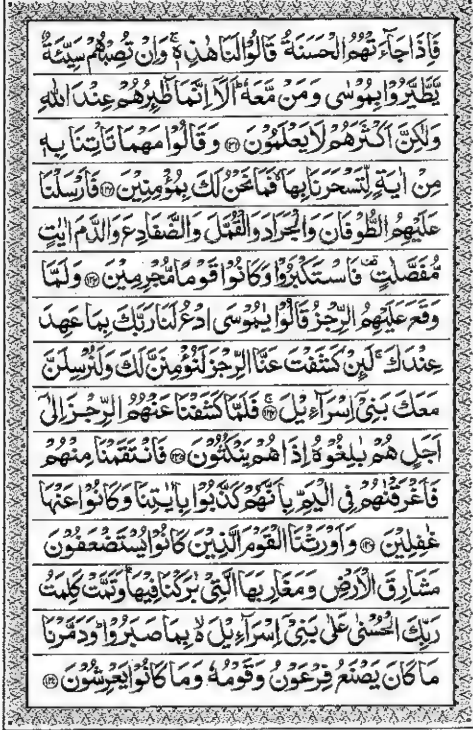 فَاِذَا جَآءَتْهُمُ الْحَسَنَةُ قَالُوْا لَنَا هٰذِهٖ ۚ وَاِنْ تُصِبْهُمْ سَيِّئَةٌ
يَّطَّيَّرُوْا بِمُوْسٰى وَمَنْ مَّعَهٗ ؕ اَلَاۤ اِنَّمَا طٰٓئِرُهُمْ عِنْدَ اللّٰهِ
وَلٰكِنَّ اَكْثَرَهُمْ لَا يَعْلَمُوْنَ ﴿۱۳۱﴾ وَقَالُوْا مَهْمَا تَاْتِنَا بِهٖ
مِنْ اٰيَةٍ لِّتَسْحَرَنَا بِهَا ۙ فَمَا نَحْنُ لَكَ بِمُؤْمِنِيْنَ ﴿۱۳۲﴾ فَاَرْسَلْنَا
عَلَيْهِمُ الطُّوْفَانَ وَالْجَرَادَ وَالْقُمَّلَ وَالضَّفَادِعَ وَالدَّمَ اٰيٰتٍ
مُّفَصَّلٰتٍ ۟ فَاسْتَكْبَرُوْا وَكَانُوْا قَوْمًا مُّجْرِمِيْنَ ﴿۱۳۳﴾ وَلَمَّا
وَقَعَ عَلَيْهِمُ الرِّجْزُ قَالُوْا يٰمُوْسَى ادْعُ لَنَا رَبَّكَ بِمَا عَهِدَ
عِنْدَكَ ۚ لَئِنْ كَشَفْتَ عَنَّا الرِّجْزَ لَنُؤْمِنَنَّ لَكَ وَلَنُرْسِلَنَّ
مَعَكَ بَنِيْۤ اِسْرَآءِيْلَ ﴿۱۳۴﴾ فَلَمَّا كَشَفْنَا عَنْهُمُ الرِّجْزَ اِلٰۤى
اَجَلٍ هُمْ بٰلِغُوْهُ اِذَا هُمْ يَنْكُثُوْنَ ﴿۱۳۵﴾ فَانْتَقَمْنَا مِنْهُمْ
فَاَغْرَقْنٰهُمْ فِى الْيَمِّ بِاَنَّهُمْ كَذَّبُوْا بِاٰيٰتِنَا وَكَانُوْا عَنْهَا
غٰفِلِيْنَ ﴿۱۳۶﴾ وَاَوْرَثْنَا الْقَوْمَ الَّذِيْنَ كَانُوْا يُسْتَضْعَفُوْنَ
مَشَارِقَ الْاَرْضِ وَمَغَارِبَهَا الَّتِيْ بٰرَكْنَا فِيْهَا ؕ وَتَمَّتْ كَلِمَتُ
رَبِّكَ الْحُسْنٰى عَلٰى بَنِيْۤ اِسْرَآءِيْلَ ۙ۬ بِمَا صَبَرُوْا ؕ وَدَمَّرْنَا
مَا كَانَ يَصْنَعُ فِرْعَوْنُ وَقَوْمُهٗ وَمَا كَانُوْا يَعْرِشُوْنَ ﴿۱۳۷﴾